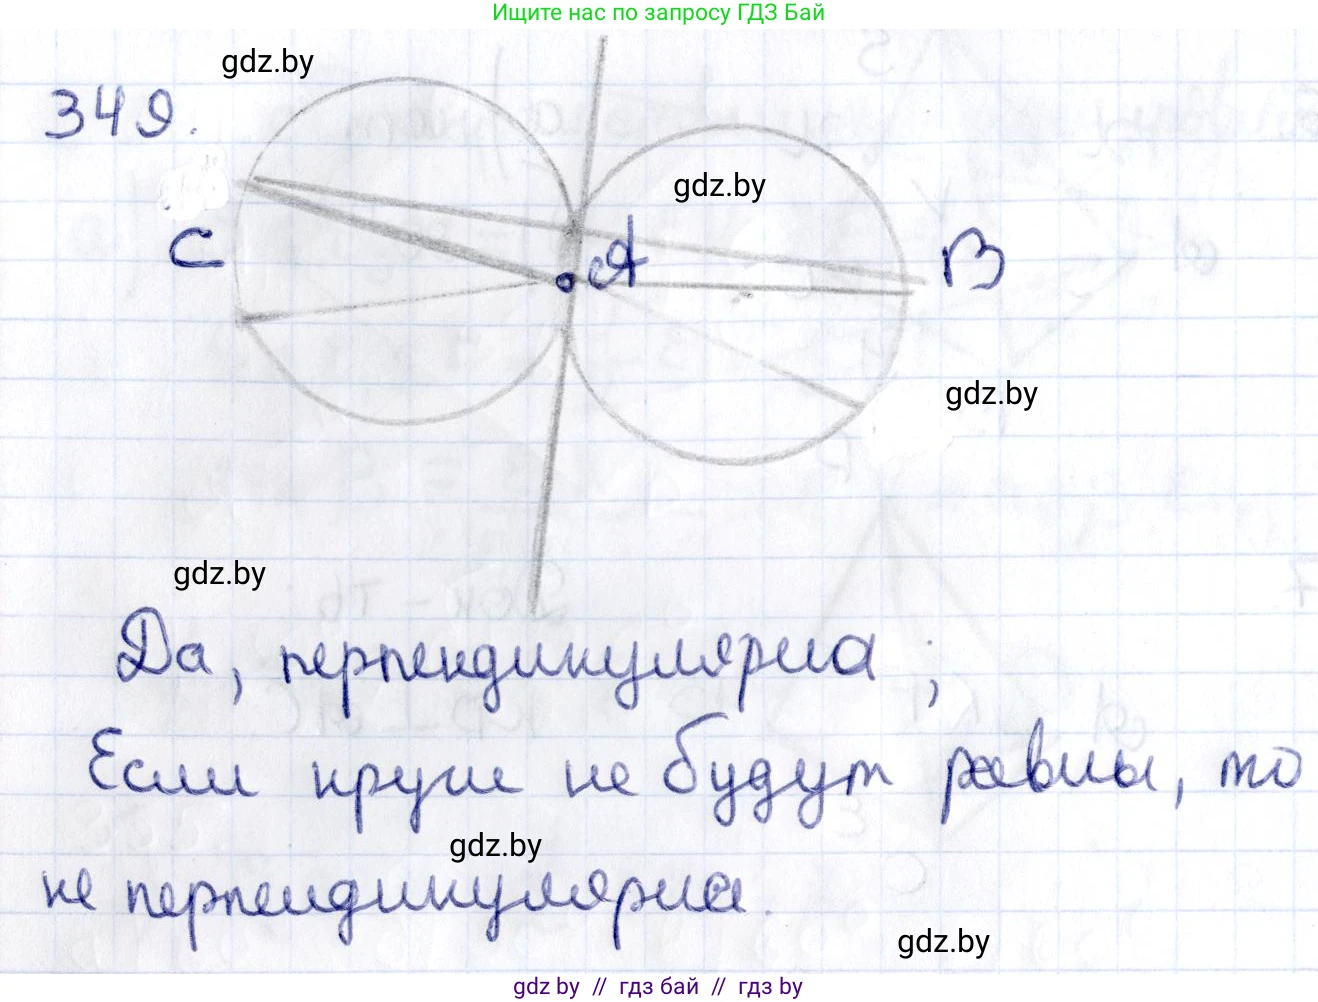 Ищите нас по запросу ГДЗ Бай
gdz.by
349.
gdz.by
C
A
B
gdz.by
gdz.by
Да, перпендикулярна ;
Если круги не будут равны, то
gdz.by
не перпендикулярна.
gdz.by
gdz by // гдз бай // gdz by